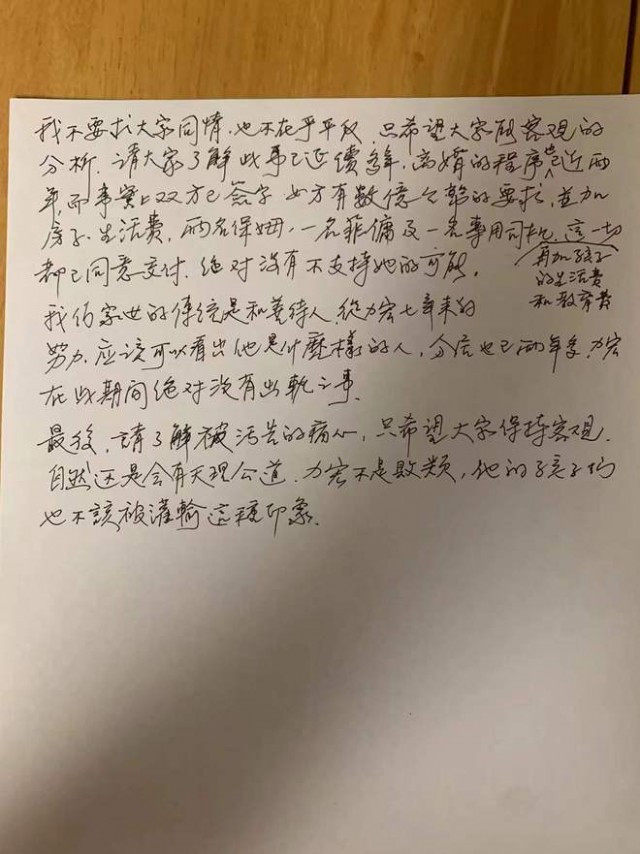 我不要求大家同情,也不在乎平反,只希望大家能客观的
分析.請大家了解此事已延續多年,离婚的程序也近两
年,而事實上双方已簽字.女方有數億台幣的要求,並加
房子.生活費,兩名保姆,一名菲傭及一名專用司机.這一切
再加孩子
的生活費
和教育費
都已同意交付.绝对沒有不支持她的可能.
我们家世的傳統是和善待人.從力宏七年来的
努力.应該可以看出他是什麼樣的人,分居也已兩年多,力宏
在此期间绝对沒有出軌之事.
最後,請了解被污告的痛心,只希望大家保持客观.
自然还是会有天理公道.力宏不是敗类,他的孩子们
也不該被灌輸這種印象.